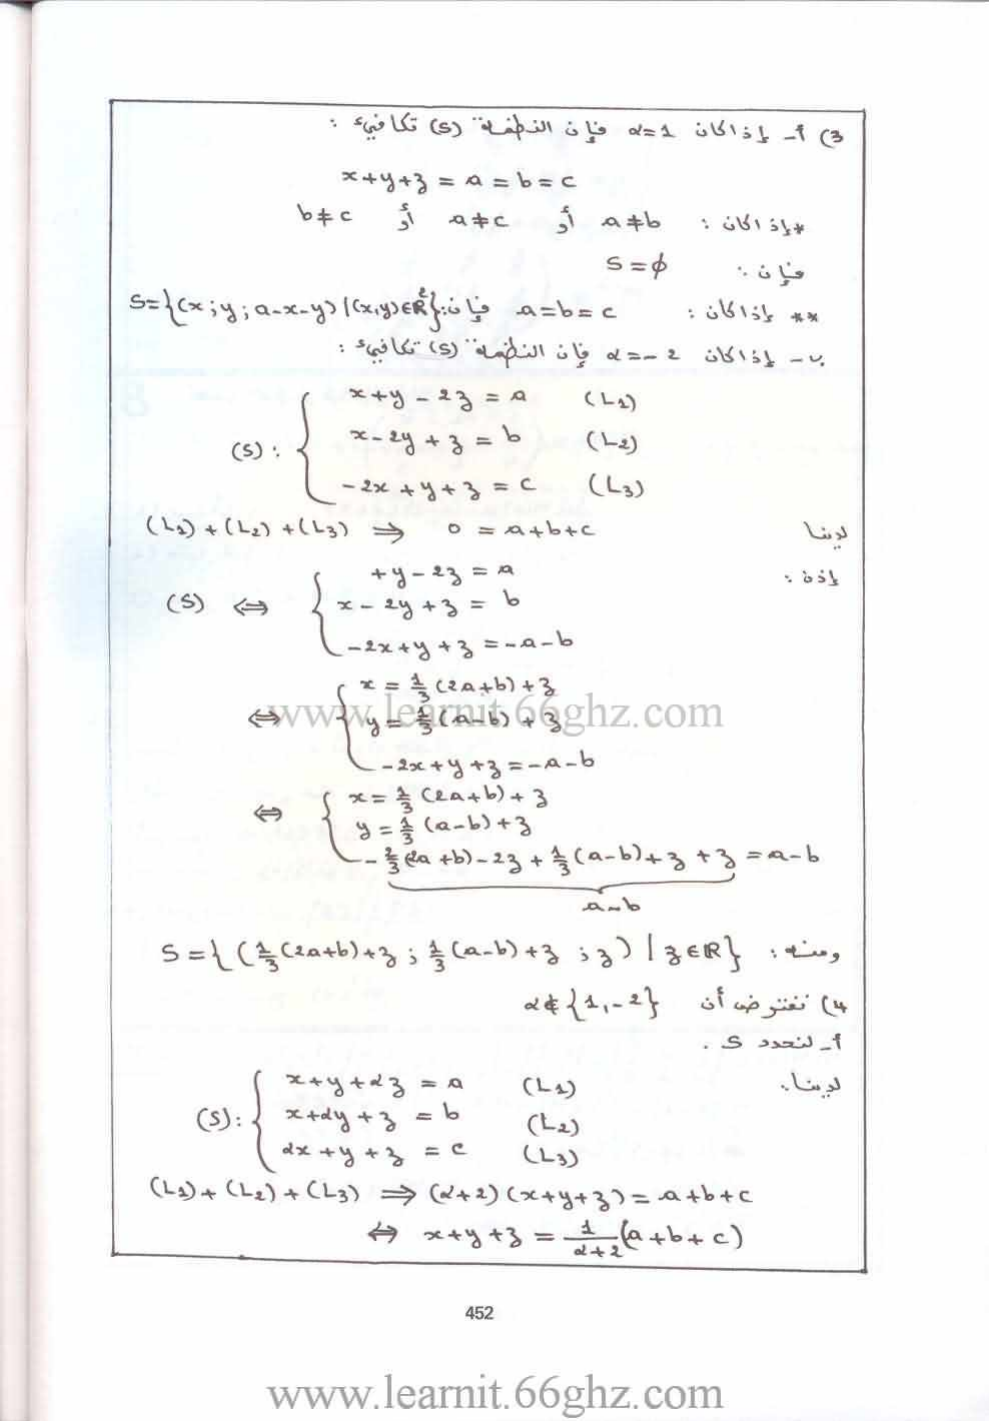 3) أ- إذا كان α=1 فإن النظمة (S) تكافيء :
x+y+z = a = b = c
* إذا كان : a≠b أو a≠c أو b≠c
فإن : S=∅
** إذا كان : a=b=c فإن : S={(x;y;a-x-y)/(x,y)∈ℝ²}
ب- إذا كان α=-2 فإن النظمة (S) تكافيء :
x+y-2z = a (L1)
(S) : x-2y+z = b (L2)
-2x+y+z = c (L3)
لدينا (L1)+(L2)+(L3) ⇒ 0 = a+b+c
إذن :
+y-2z = a
(S) ⇔ x-2y+z = b
-2x+y+z = -a-b
x = 1/3 (2a+b)+z
⇔ y = 1/3 (a-b)+z
-2x+y+z = -a-b
x = 1/3 (2a+b)+z
⇔ y = 1/3 (a-b)+z
-2/3 (2a+b)-2z+1/3 (a-b)+z+z = a-b
a-b
ومنه : S={(1/3 (2a+b)+z ; 1/3 (a-b)+z ; z) | z∈ℝ}
4) نفترض أن α∉{1,-2}
أ- لنحدد S .
لدينا :
x+y+αz = a (L1)
(S) : x+αy+z = b (L2)
αx+y+z = c (L3)
(L1)+(L2)+(L3) ⇒ (α+2)(x+y+z) = a+b+c
⇔ x+y+z = 1/(α+2) (a+b+c)
452
www.learnit.66ghz.com
www.learnit.66ghz.com